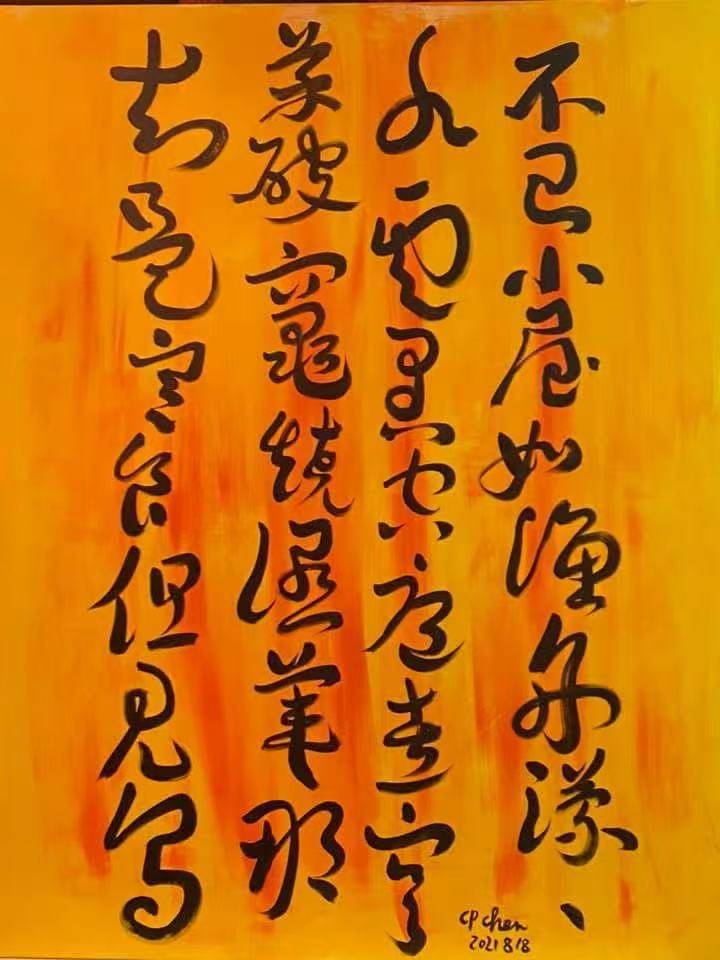 不已小屋如漁舟濛〻
水雲裏空庖煮寒
菜破竈燒濕葦那
知是寒食但見烏
CP Chen
2021 8/8